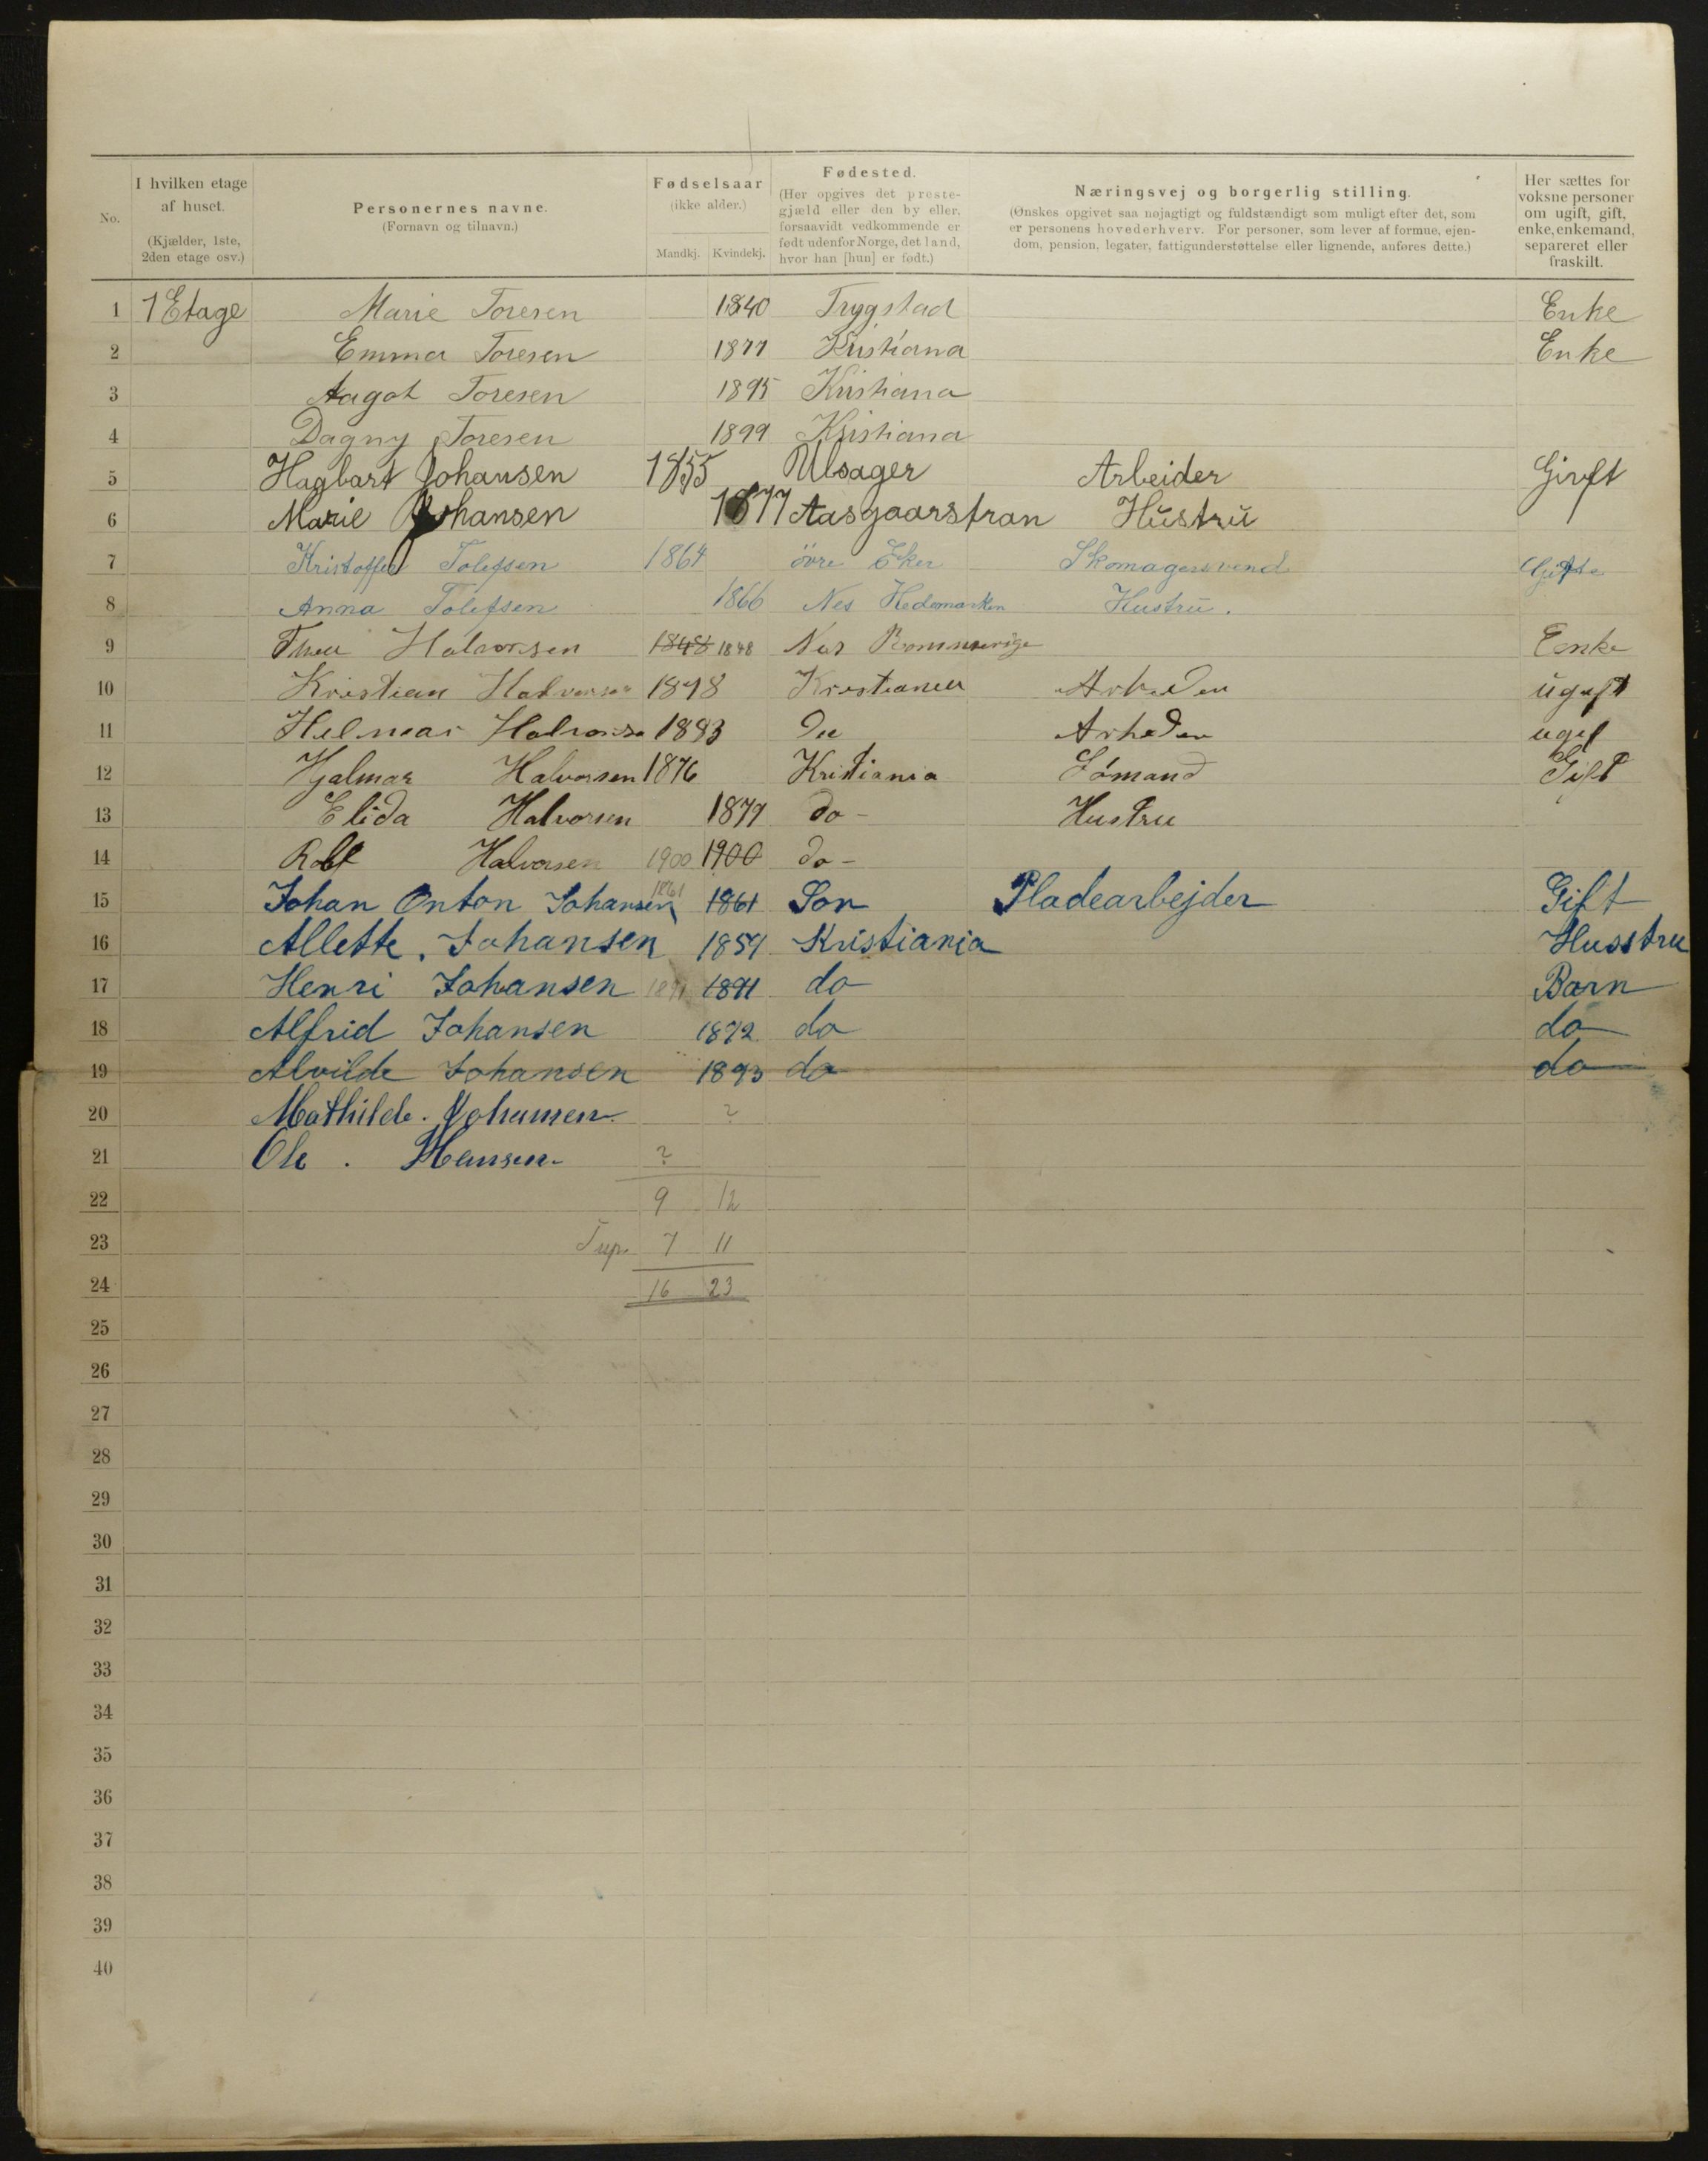 No. | I hvilken etage af huset. (Kjælder, 1ste, 2den etage osv.) | Personernes navne. (Fornavn og tilnavn.) | Fødselsaar (ikke alder.) Mandkj. Kvindekj. | Fødested. (Her opgives det prestegjæld eller den by eller, forsaavidt vedkommende er født udenfor Norge, det land, hvor han [hun] er født.) | Næringsvej og borgerlig stilling. (Ønskes opgivet saa nøjagtigt og fuldstændigt som muligt efter det, som er personens hovederhverv. For personer, som lever af formue, ejendom, pension, legater, fattigunderstøttelse eller lignende, anføres dette.) | Her sættes for voksne personer om ugift, gift, enke, enkemand, separeret eller fraskilt.
1 1 Etage Marie Toresen 1840 Trygstad Enke
2 Emma Toresen 1877 Kristiana Enke
3 Aagot Toresen 1895 Kristiana
4 Dagny Toresen 1899 Kristiana
5 Hagbart Johansen 1855 Ulsager Arbeider Givft
6 Marie Johansen 1877 Aasgaarstran Hustru
7 Kristoffer Tolefsen 1864 övre Eker Skomagersvend
8 Anna Tolefsen 1866 Nes Hedemarken Hustru.
9 Thea Halvorsen 1848 1848 Nes Enke
10 Kristian Halvorsen 1878 Kristiania ugift
11 Helmar 1883
12 Hjalmar Halvorsen 1876 Kristiania Sömand Gift
13 Elida Halvorsen 1877 do - Hustru
14 Rolf Halvorsen 1900 1900 do -
15 Johan Anton Johansen 1861 1861 Son Pladearbejder Gift
16 Allette. Johansen 1859 Kristiania Husstru
17 Henri Johansen 1891 1891 do Barn
18 Alfrid Johansen 1892 do do
19 Alvilde Johansen 1893 do do
20 Mathilde. Johansen ?
21 Ole. Hansen ?
22 9 12
23 7 11
24 16 23
25
26
27
28
29
30
31
32
33
34
35
36
37
38
39
40